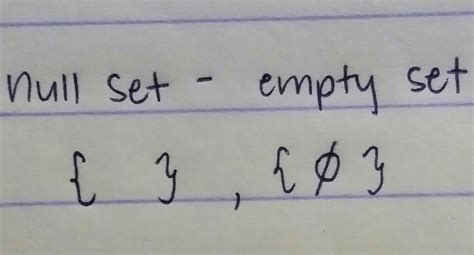 null set - empty set
{ } , { ∅ }